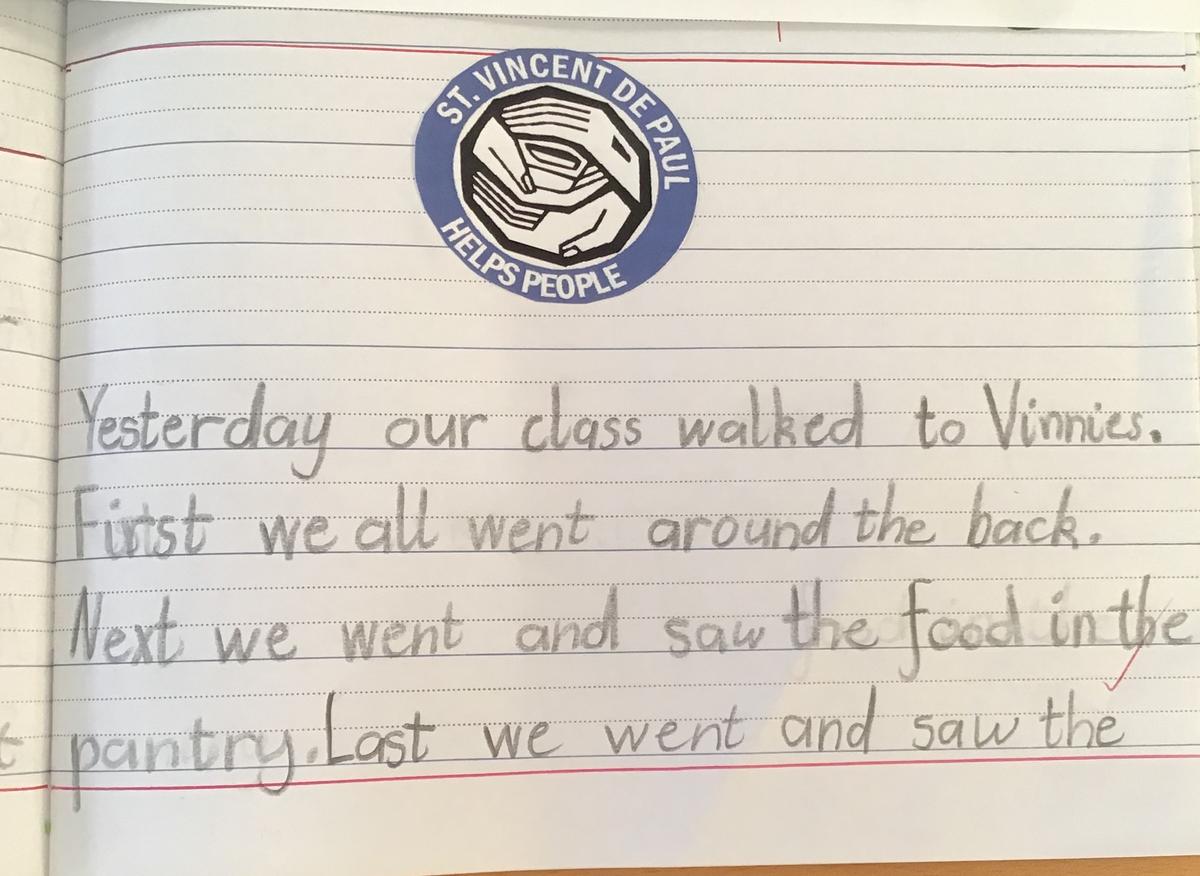 ST. VINCENT DE PAUL
HELPS PEOPLE
Yesterday our class walked to Vinnies.
First we all went around the back.
Next we went and saw the food in the
pantry. Last we went and saw the
t